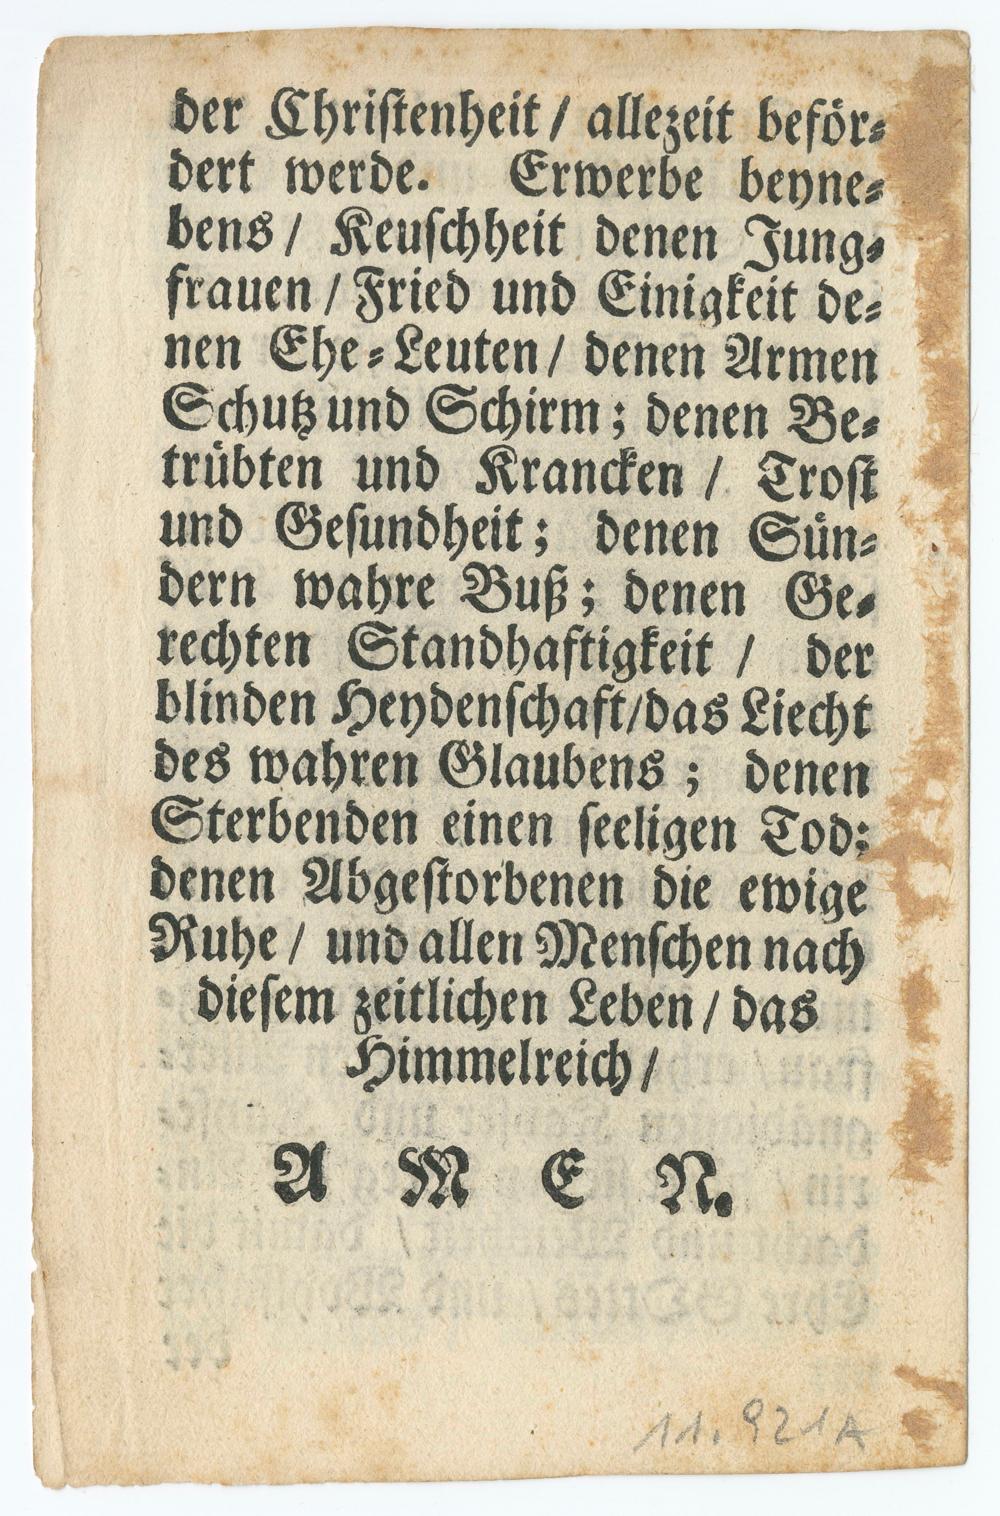 der Chriſtenheit / allezeit beför⸗
dert werde. Erwerbe beyne⸗
bens / Keuſchheit denen Jung⸗
frauen / Fried und Einigkeit de⸗
nen Ehe⸗Leuten / denen Armen
Schutz und Schirm; denen Be⸗
trübten und Krancken / Troſt
und Geſundheit; denen Sün⸗
dern wahre Buß; denen Ge⸗
rechten Standhaftigkeit / der
blinden Heydenſchaft/das Liecht
des wahren Glaubens; denen
Sterbenden einen ſeeligen Tod;
denen Abgeſtorbenen die ewige
Ruhe / und allen Menſchen nach
dieſem zeitlichen Leben / das
Himmelreich /
A M E N.
11.921A